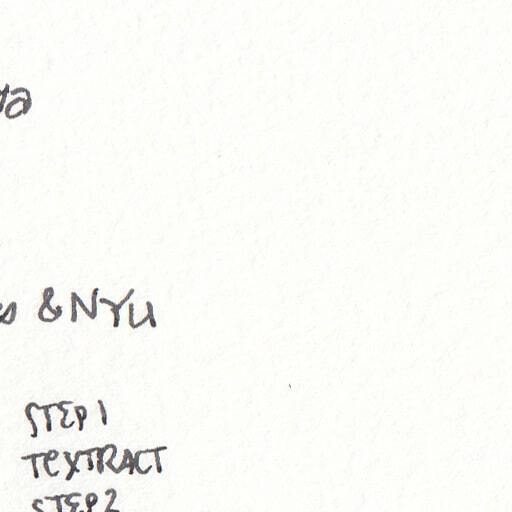 & NYU
STEP 1
TEXTRACT
STEP 2